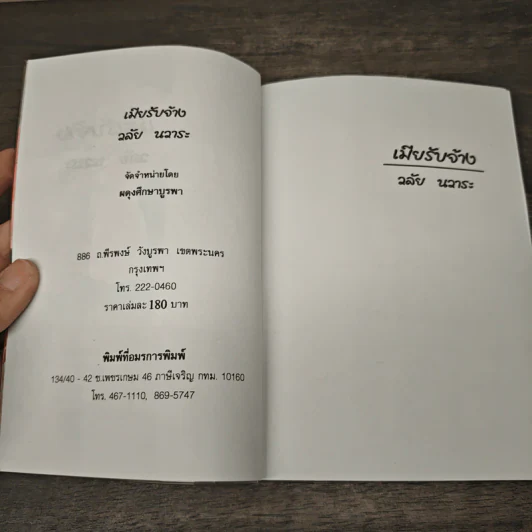 เมียรับจ้าง
วลัย นวาระ
จัดจำหน่ายโดย
ผดุงศึกษาบูรพา
886 ถ.พีรพงษ์ วังบูรพา เขตพระนคร
กรุงเทพฯ
โทร. 222-0460
ราคาเล่มละ 180 บาท
พิมพ์ที่อมรการพิมพ์
134/40 - 42 ซ.เพชรเกษม 46 ภาษีเจริญ กทม. 10160
โทร. 467-1110, 869-5747
เมียรับจ้าง
วลัย นวาระ